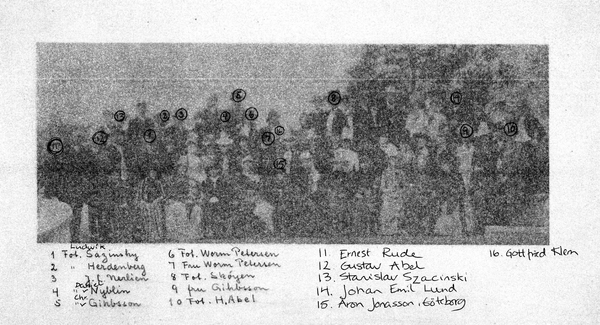 Ludvik
1 Fot. Sazinsky
2 " Herdenberg
3 " J. J. Nerlien
Daniel
4 " Nyblin
Chr.
5 " Gihbsson
6 Fot. Worm Petersen
7 Fru Worm Petersen
8 Fot. Skøyen
9 fru Gihbsson
10 Fot. H. Abel
11. Ernest Rude
12 Gustav Abel
13. Stanislav Szacinski
14. Johan Emil Lund
15. Aron Jonasson, Göteborg
16. Gottfried Klem